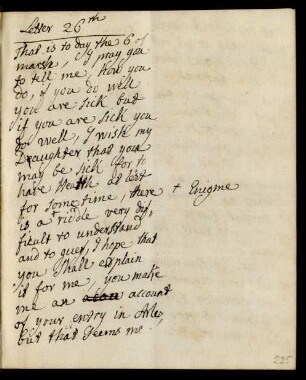 Letter 26th
That is to day the 6 of
marsh, I pray you
to tell me, how you
do, if you do well
you are sick but
if you are sick you
do well, I wish my
Draughter that you
may be sick for to
have Health at lest
for some time, there + Enigme
is a + riddle very dif,
ficult to understand
and to gues, I hope that
you Shall explain
it for me, you make
me an account
of your entry in Arles
but that Seems me,
225